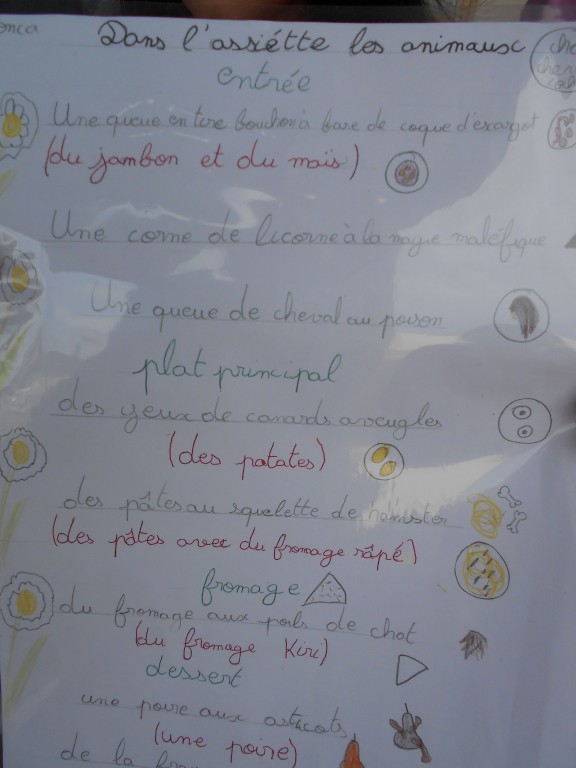 onca
Dans l'assiétte les animaux
che
entrée
Une queue en tire bouchon à base de coque d'escargot
(du jambon et du maïs)
Une corne de licorne à la magie maléfique
Une queue de cheval au poison
plat principal
des yeux de canards aveugles
(des patates)
des pâtes au squelette de hamster
(des pâtes avec du fromage râpé)
fromage
du fromage aux poils de chat
(du fromage Kiri)
dessert
une poire aux asticots
(une poire)
de la